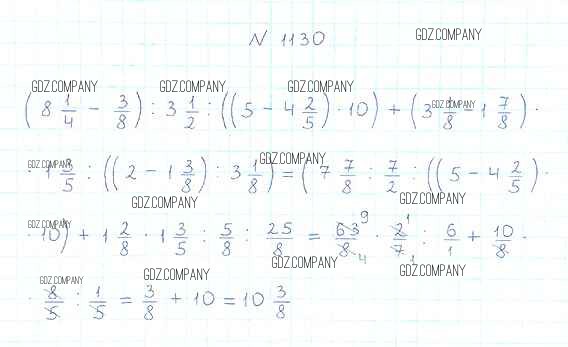 N 1130 GDZ.COMPANY
GDZ.COMPANY GDZ.COMPANY GDZ.COMPANY
(8 1/4 - 3/8) : 3 1/2 : ((5 - 4 2/5) · 10) + (3 1/8 - 1 7/8) · GDZ.COMPANY
· 1 3/5 : ((2 - 1 3/8) : 3 1/8) = (7 7/8 : 7/2 : ((5 - 4 2/5) · GDZ.COMPANY GDZ.COMPANY
GDZ.COMPANY GDZ.COMPANY
· 10) + 1 2/8 · 1 3/5 : 5/8 : 25/8 = 63 9/8 4 · 2 1/7 1 : 6/1 + 10/8 · GDZ.COMPANY
GDZ.COMPANY GDZ.COMPANY GDZ.COMPANY GDZ.COMPANY
· 8/5 : 1/5 = 3/8 + 10 = 10 3/8